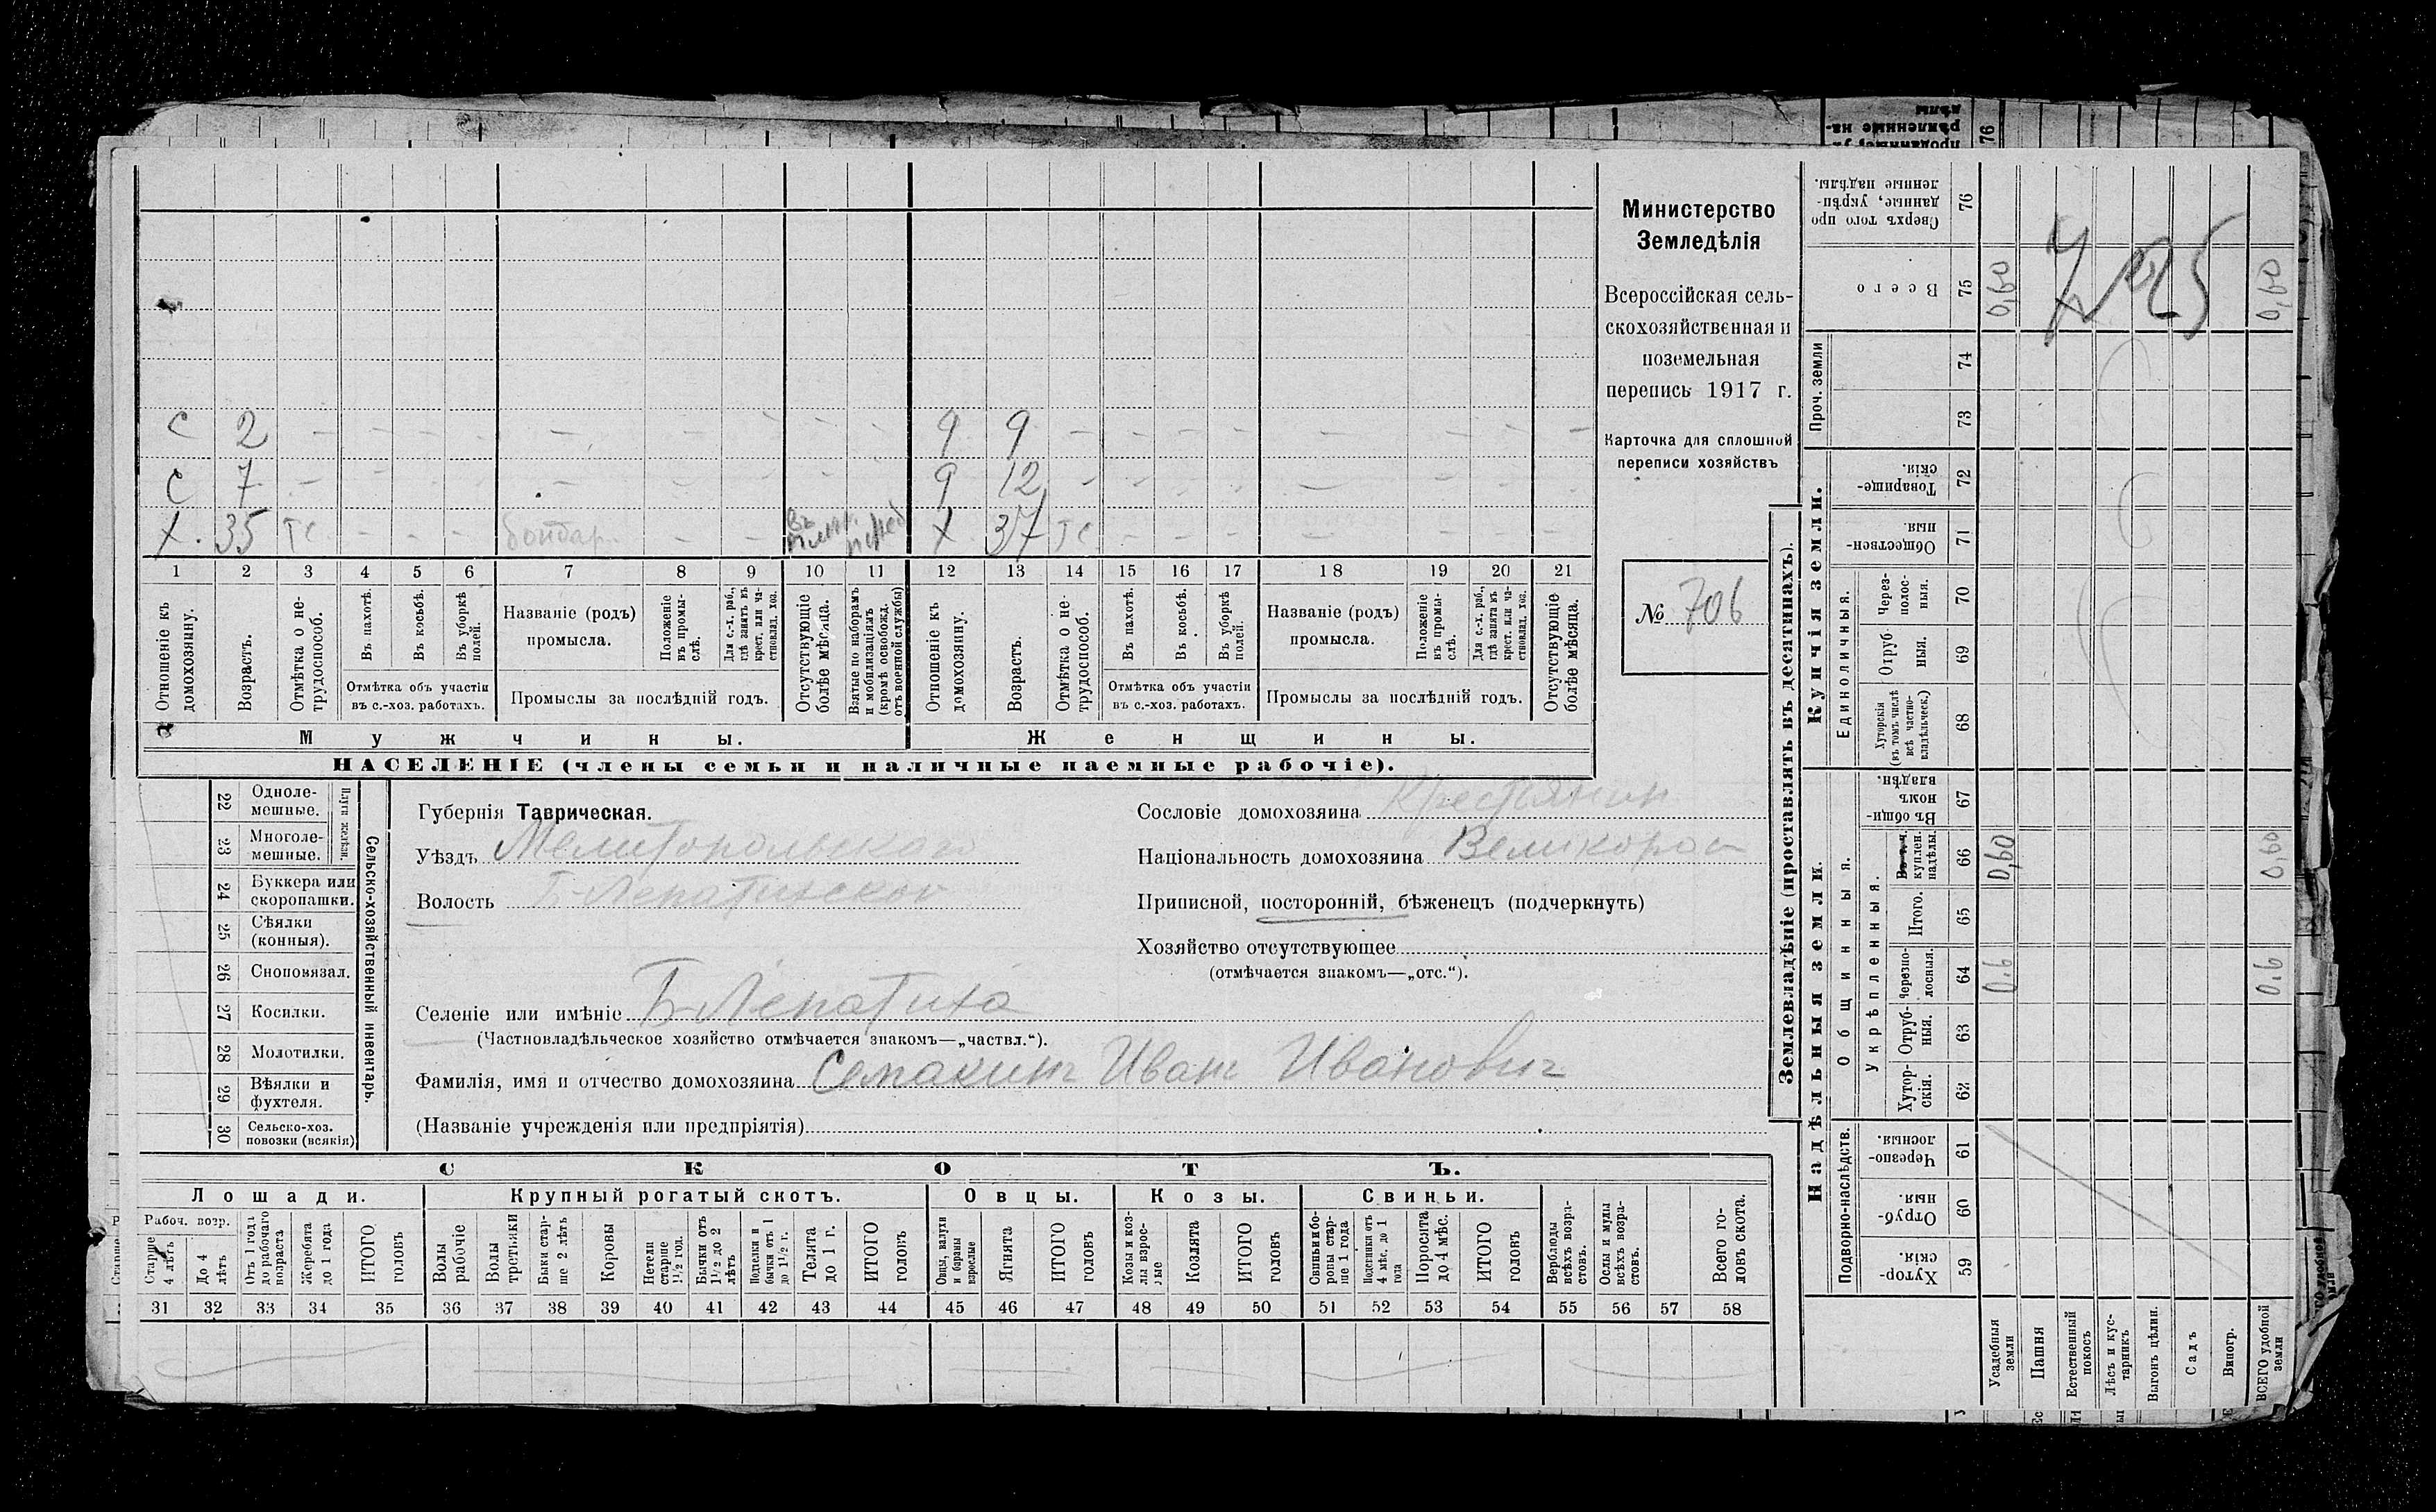 Министерство
Земледѣлія
Всероссійская сель-
скохозяйственная и
поземельная
перепись 1917 г.
Карточка для сплошной
переписи хозяйствъ
№ 706
с 2 – – – – – – – – – 9 9 – – – – – – – –
с 7 – – – – – – – – – 9 12 – – – – – – – –
х. 35 тс – – – бондар. – – въ х 37 тс – – – – – – –
1 2 3 4 5 6 7 8 9 10 11 12 13 14 15 16 17 18 19 20 21
Отношеніе къ домохозяину.
Возрастъ.
Отмѣтка о не-трудоспособ.
Въ пахотѣ.
Въ косьбѣ.
Въ уборкѣ полей.
Отмѣтка объ участіи
въ с.-хоз. работахъ.
Названіе (родъ)
промысла.
Положеніе въ промы-слѣ.
Для с.-х. раб., гдѣ занятъ въ крест. или ча-стновлад. хоз.
Промыслы за послѣдній годъ.
Отсутствующіе болѣе мѣсяца.
Взятые по наборамъ и мобилизаціямъ (кромѣ освобожд. отъ военной службы)
Отношеніе къ домохозяину.
Возрастъ.
Отмѣтка о не-трудоспособ.
Въ пахотѣ.
Въ косьбѣ.
Въ уборкѣ полей.
Отмѣтка объ участіи
въ с.-хоз. работахъ.
Названіе (родъ)
промысла.
Положеніе въ промы-слѣ.
Для с.-х. раб., гдѣ занята въ крест. или ча-стновлад. хоз.
Промыслы за послѣдній годъ.
Отсутствующіе болѣе мѣсяца.
Мужчины. Женщины.
НАСЕЛЕНІЕ (члены семьи и наличные наемные рабочіе).
22 Одноле-мешные.
23 Многоле-мешные.
Плуги желѣзн.
24 Буккера или скоропашки.
25 Сѣялки (конныя).
26 Сноповязал.
27 Косилки.
28 Молотилки.
29 Вѣялки и фухтеля.
30 Сельско-хоз. повозки (всякія)
Сельско-хозяйственный инвентарь.
Губернія Таврическая.
Уѣздъ Мелитопольскаго
Волость Б-Лепатихской
Селеніе или имѣніе Б-Лепатиха
(Частновладѣльческое хозяйство отмѣчается знакомъ—„частвл.“).
Фамилія, имя и отчество домохозяина Семакинъ Иванъ Ивановичъ
(Названіе учрежденія или предпріятія)
Сословіе домохозяина Крестьянин
Національность домохозяина Великорос
Приписной, посторонній, бѣженецъ (подчеркнуть)
Хозяйство отсутствующее
(отмѣчается знакомъ—„отс.“).
СКОТЪ.
Лошади. Крупный рогатый скотъ. Овцы. Козы. Свиньи.
Рабоч. возр.
Старше 4 лѣтъ
До 4 лѣтъ
Отъ 1 года до рабочаго возраста
Жеребята до 1 года
ИТОГО головъ
Волы рабочіе
Волы третьяки
Быки стар-ше 2 лѣтъ
Коровы
Нетели старше 1½ год.
Бычки отъ 1½ до 2 лѣтъ
Подтелки и бычки отъ 1 до 1½ г.
Телята до 1 г.
ИТОГО головъ
Овцы, валухи и бараны взрослые
Ягнята
ИТОГО головъ
Козы и коз-лы взрос-лые
Козлята
ИТОГО головъ
Свиньи и бо-ровы стар-ше 1 года
Подсвинки отъ 4 мѣс. до 1 года
Поросята до 4 мѣс.
ИТОГО головъ
Верблюды всѣхъ возра-стовъ.
Ослы и мулы всѣхъ возра-стовъ.
Всего го-ловъ скота.
31 32 33 34 35 36 37 38 39 40 41 42 43 44 45 46 47 48 49 50 51 52 53 54 55 56 57 58
Землевладѣніе (проставлять въ десятинахъ).
Надѣльныя земли.
Купчія земли.
Проч. земли
Подворно-наслѣдств.
Общинныя.
Укрѣпленныя.
Единоличныя.
Сверхъ того про данные, укрѣп-ленные надѣлы. 76
Всего 75 0,60 0,60
74
73
Товарище-скія. 72
Обществен-ныя. 71
Через-полос-ныя. 70
Отруб-ныя. 69
Хуторскія (въ томъ числѣ всѣ частно-владѣльческ.) 68
Въ общин-номъ владѣн. 67
Въ т. ч. куплен. надѣлы. 66 0,60 0,60
Итого. 65
Черезпо-лосныя. 64 0.6 0.6
Отруб-ныя. 63
Хутор-скія. 62
Черезпо-лосныя. 61
Отруб-ныя. 60
Хутор-скія. 59
Усадебныя земли
Пашня
Естественный покосъ
Лѣсъ и кус-тарникъ
Выгонъ цѣлин.
Садъ
Виногр.
ВСЕГО удобной земли